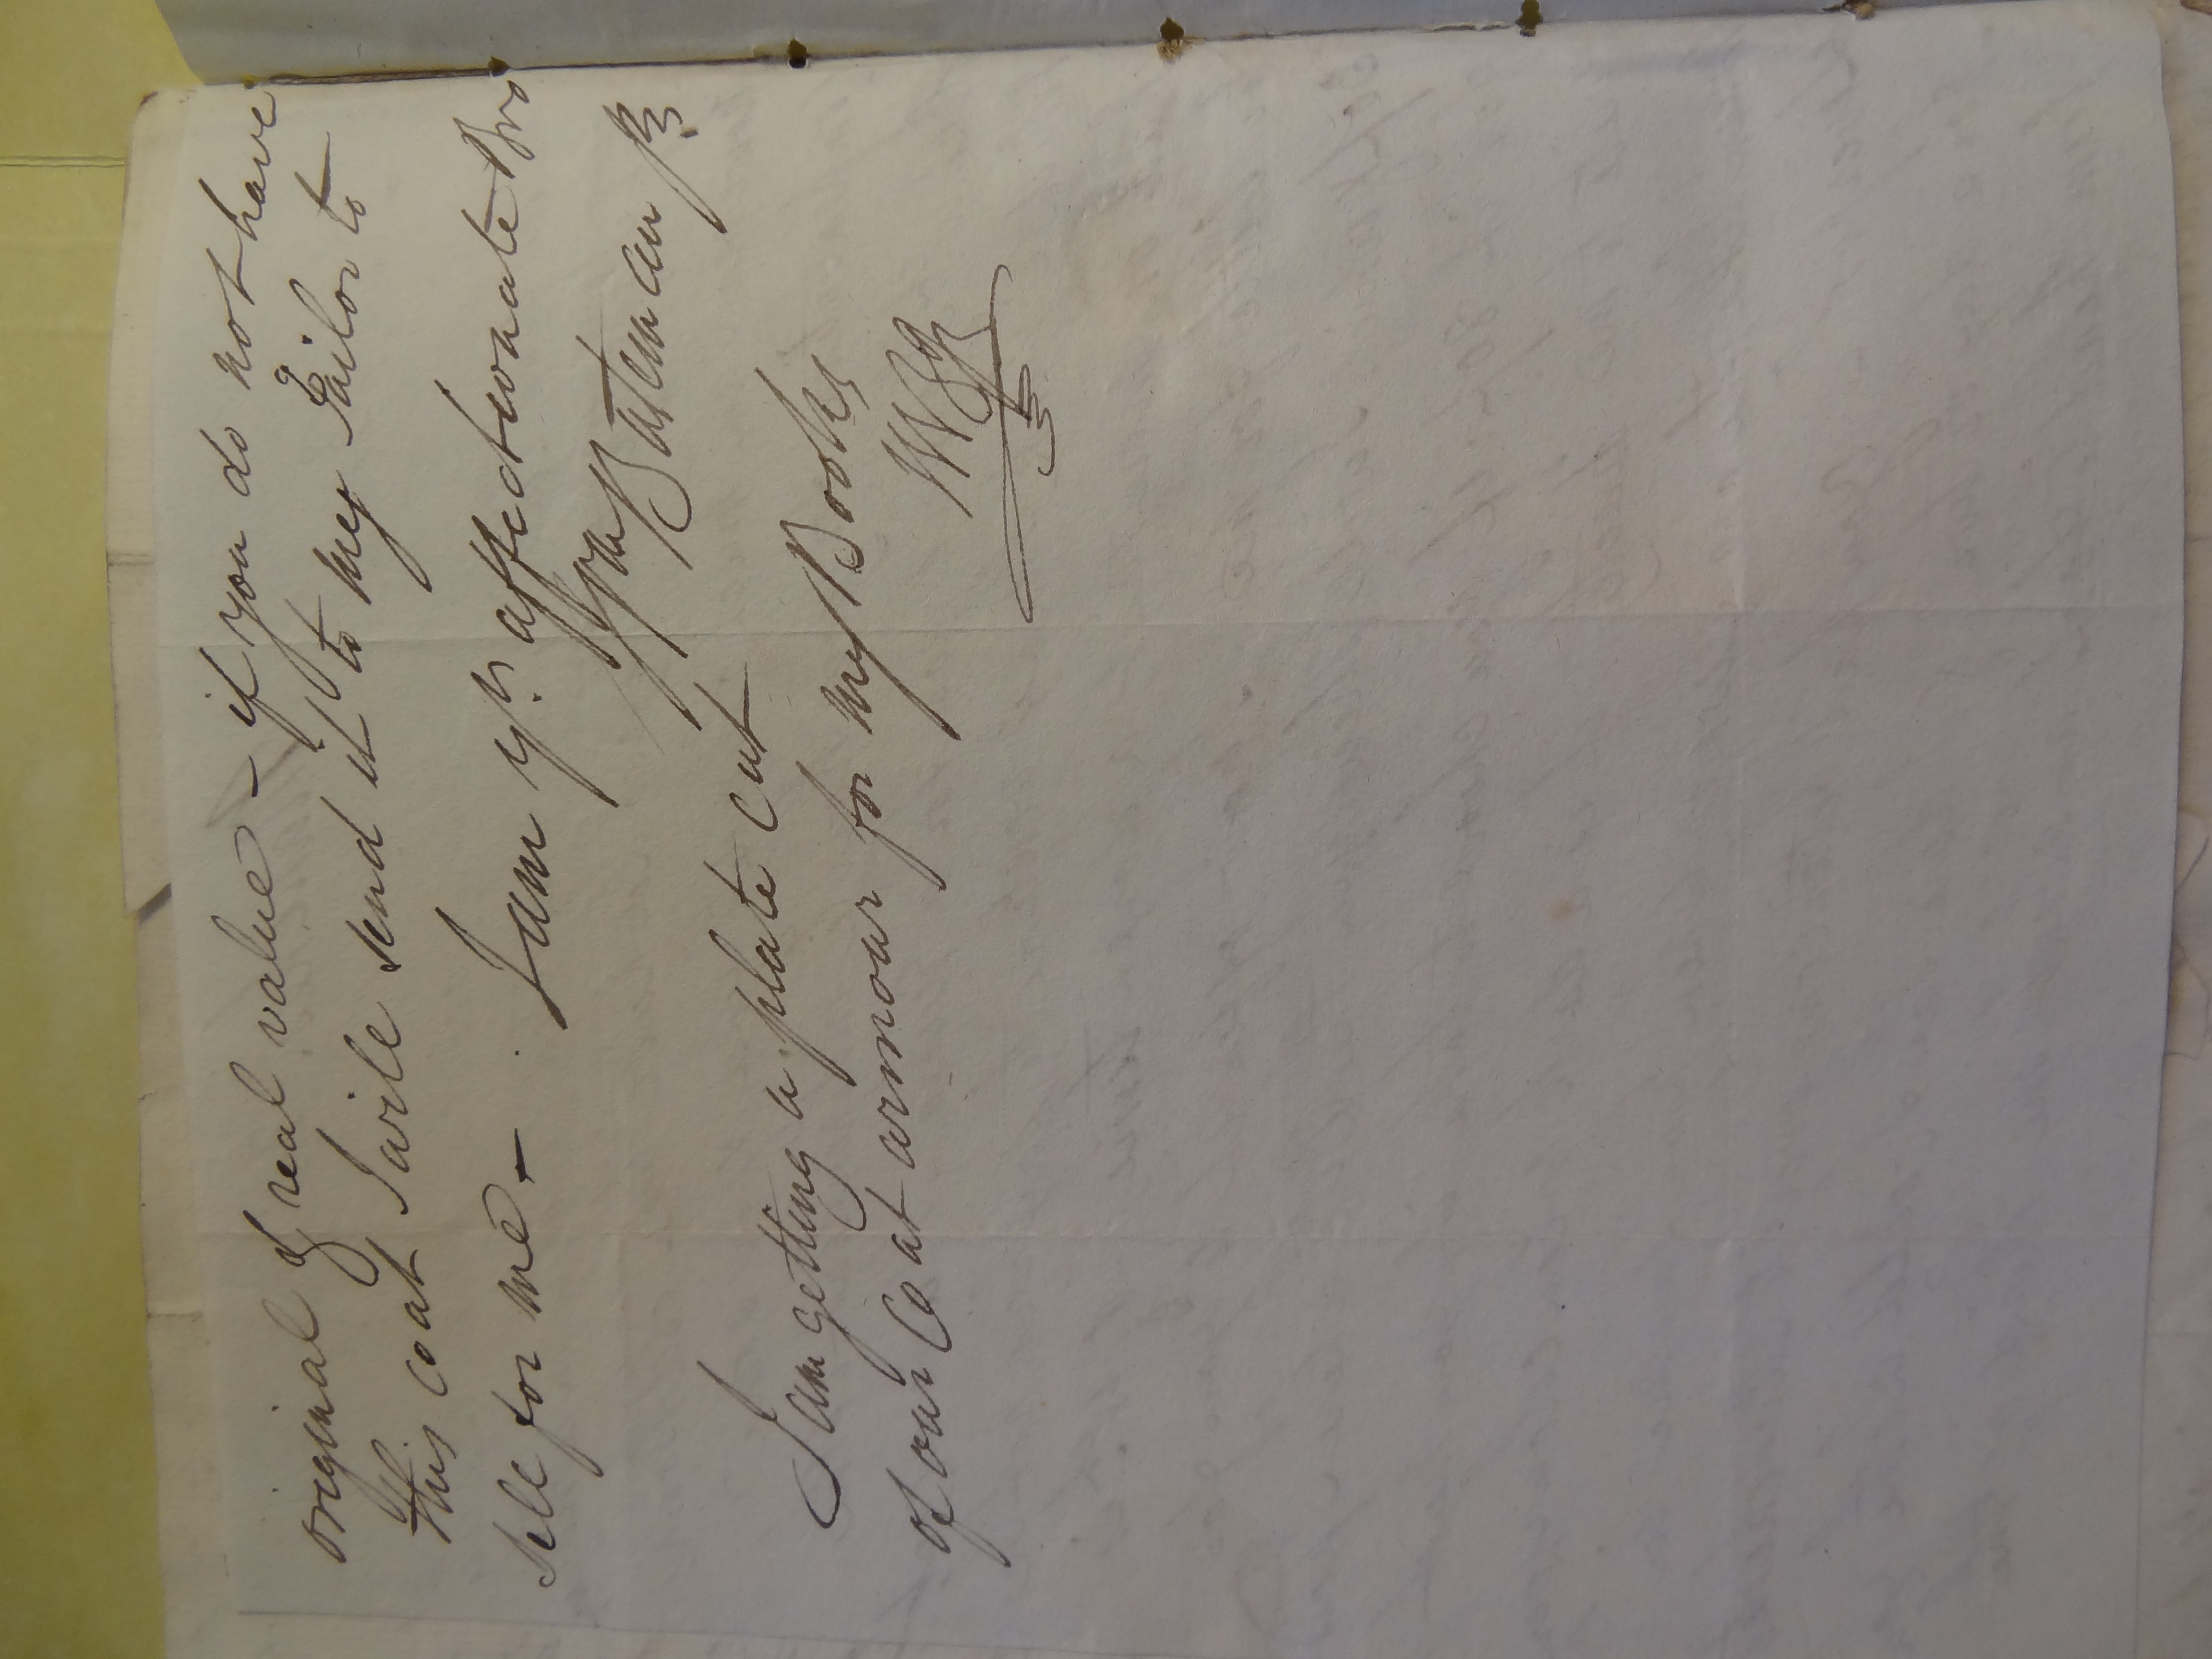 original & real value - if you do not have
this coat I will send it to my Tailor to
sell for me - I am yr. affectionate Bro
Wm Bateman Jr
I am getting a plate cut
of our Coat armour for my Books
WBJr